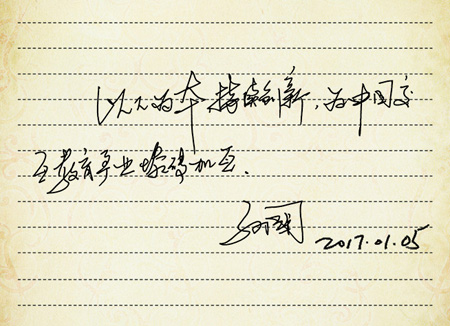 以人为本,持续创新,为中国交
互教育事业添砖加瓦.
2017.01.05